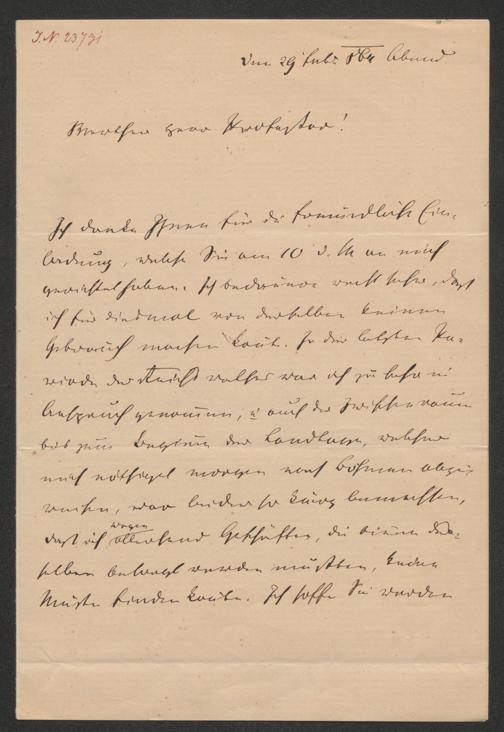 I.N. 23731
Den 29 Febr. 864 Abend
Werther Herr Professor!
Ich danke Ihnen für die freundliche Ein-
ladung, welche Sie am 10 d. M an mich
gerichtet haben. Ich bedauere recht sehr, daß
ich für diesmal von derselben keinen
Gebrauch machen konnte. In der letzten Pe-
riode des war ich zu sehr in
Anspruch genommen, u auch der Zwischenraum
bis zum Beginne der Landtage, welcher
mich nöthiget morgen nach Böhmen abzu-
reisen, war leider so kurz bemessen,
daß ich wegen Geschäften, die binnen des-
selben besorgt werden mußten, keine
Muße finden konnte. Ich hoffe Sie werden